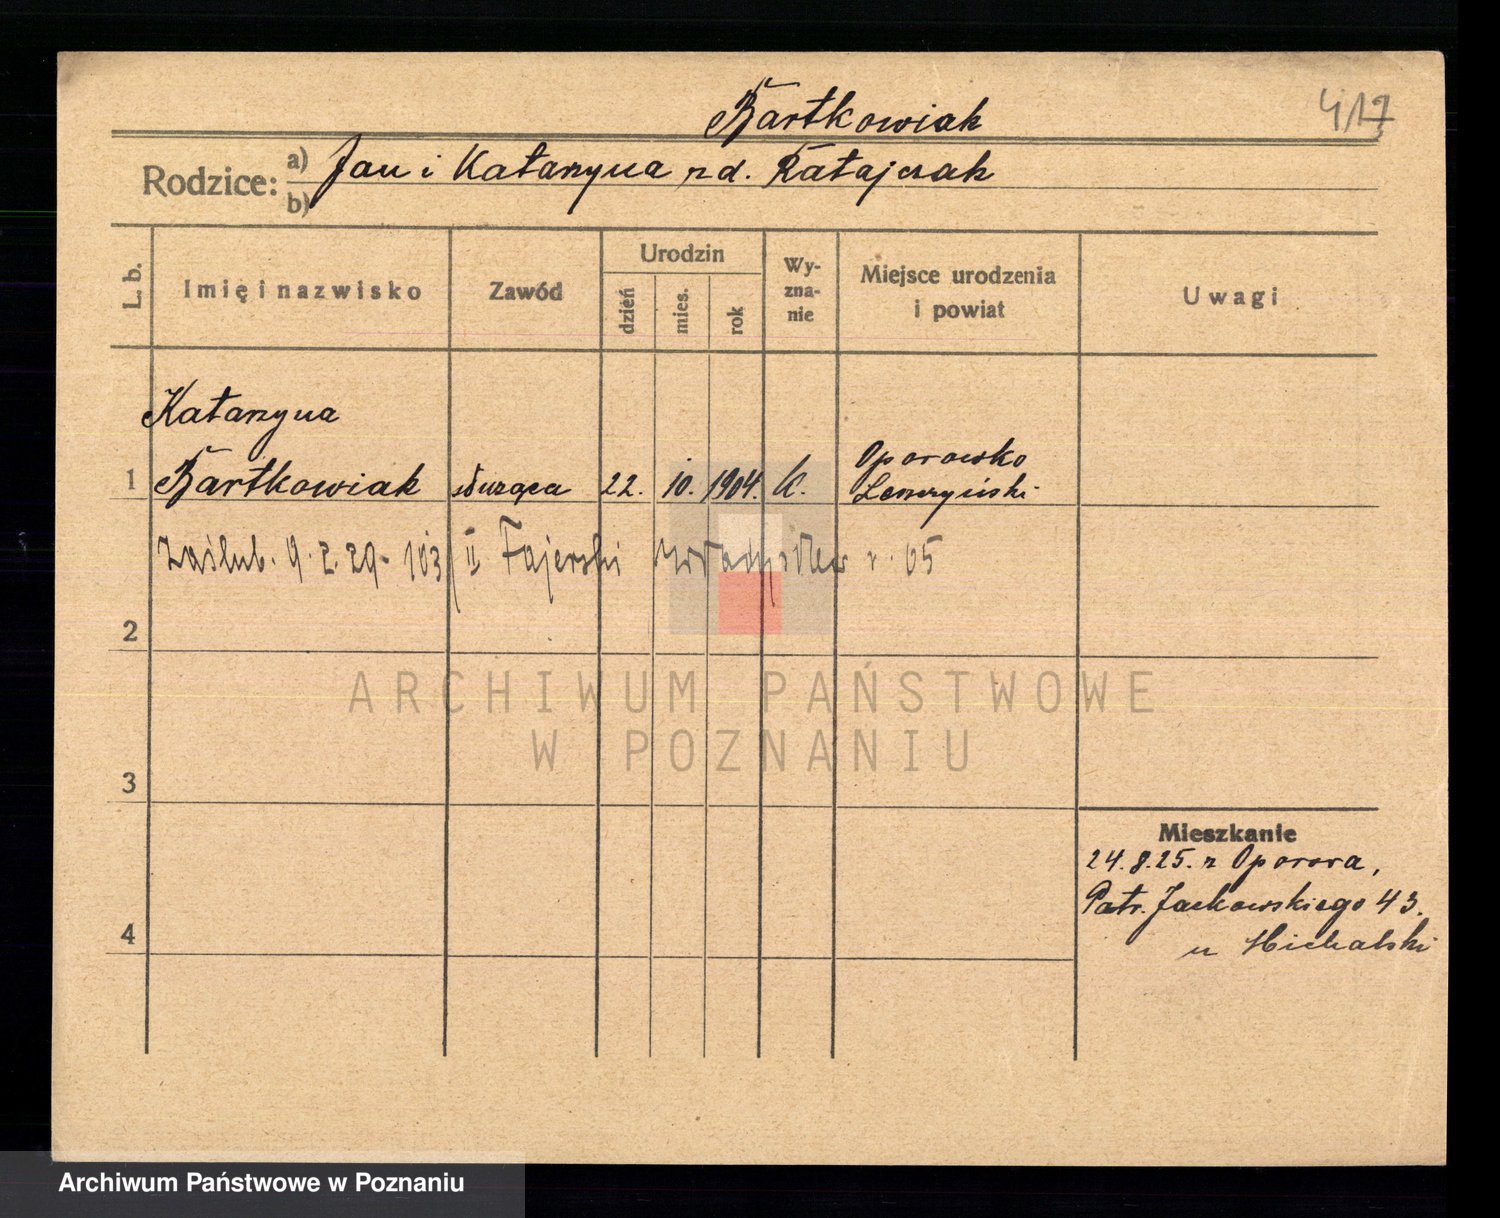 Bartkowiak
417
Rodzice: a) Jan i Katarzyna zd. Ratajczak
b)
L. b.
Imię i nazwisko
Zawód
Urodzin
dzień
mies.
rok
Wy-
zna-
nie
Miejsce urodzenia
i powiat
Uwagi
Katarzyna
1 Bartkowiak służąca 22. 10. 1904. k. Oporowko
Leszczyński
Zaślub. 9. 2. 29 - 103/II Fajerski Władysław r. 05
2
3
4
Mieszkanie
24.8.25. z Oporowa,
Patr. Jackowskiego 43.
u Michalski
ARCHIWUM PAŃSTWOWE
W POZNANIU
Archiwum Państwowe w Poznaniu